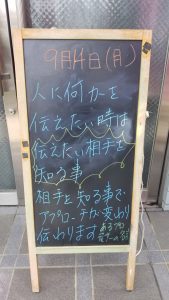 9月4日(月)
人に何かを
伝えたい時は
伝えたい相手を
知る事
相手を知る事で
アプローチが変わり
伝わります